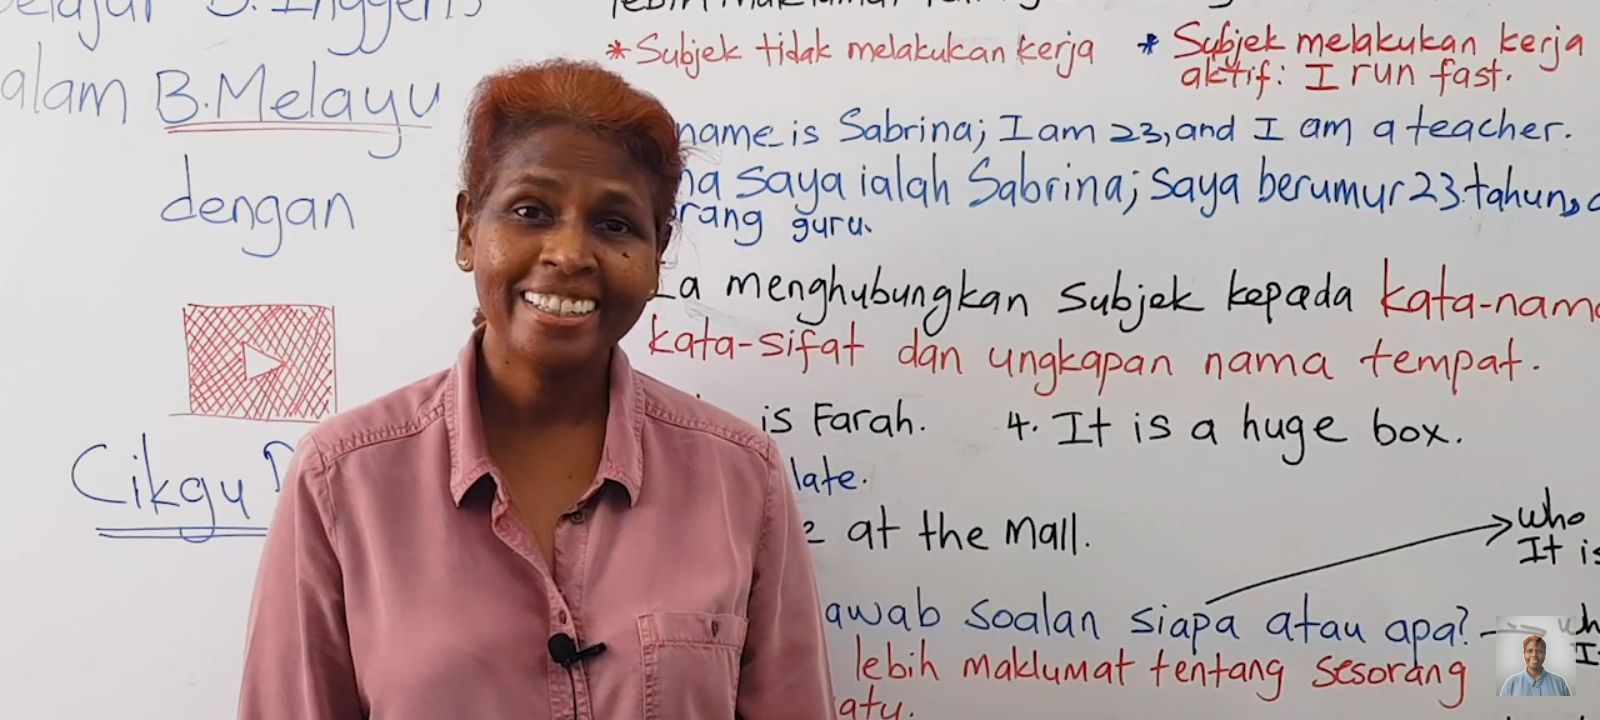 B. Inggeris
alam B. Melayu
dengan
Cikgu
* Subjek tidak melakukan kerja
* Subjek melakukan kerja
aktif: I run fast.
name is Sabrina; I am 23, and I am a teacher.
saya ialah Sabrina; saya berumur 23 tahun,
rang guru.
Ia menghubungkan subjek kepada kata-nama
kata-sifat dan ungkapan nama tempat.
is Farah.
4. It is a huge box.
late.
at the mall.
who
It is
awab soalan siapa atau apa?
lebih maklumat tentang sesorang
atu.